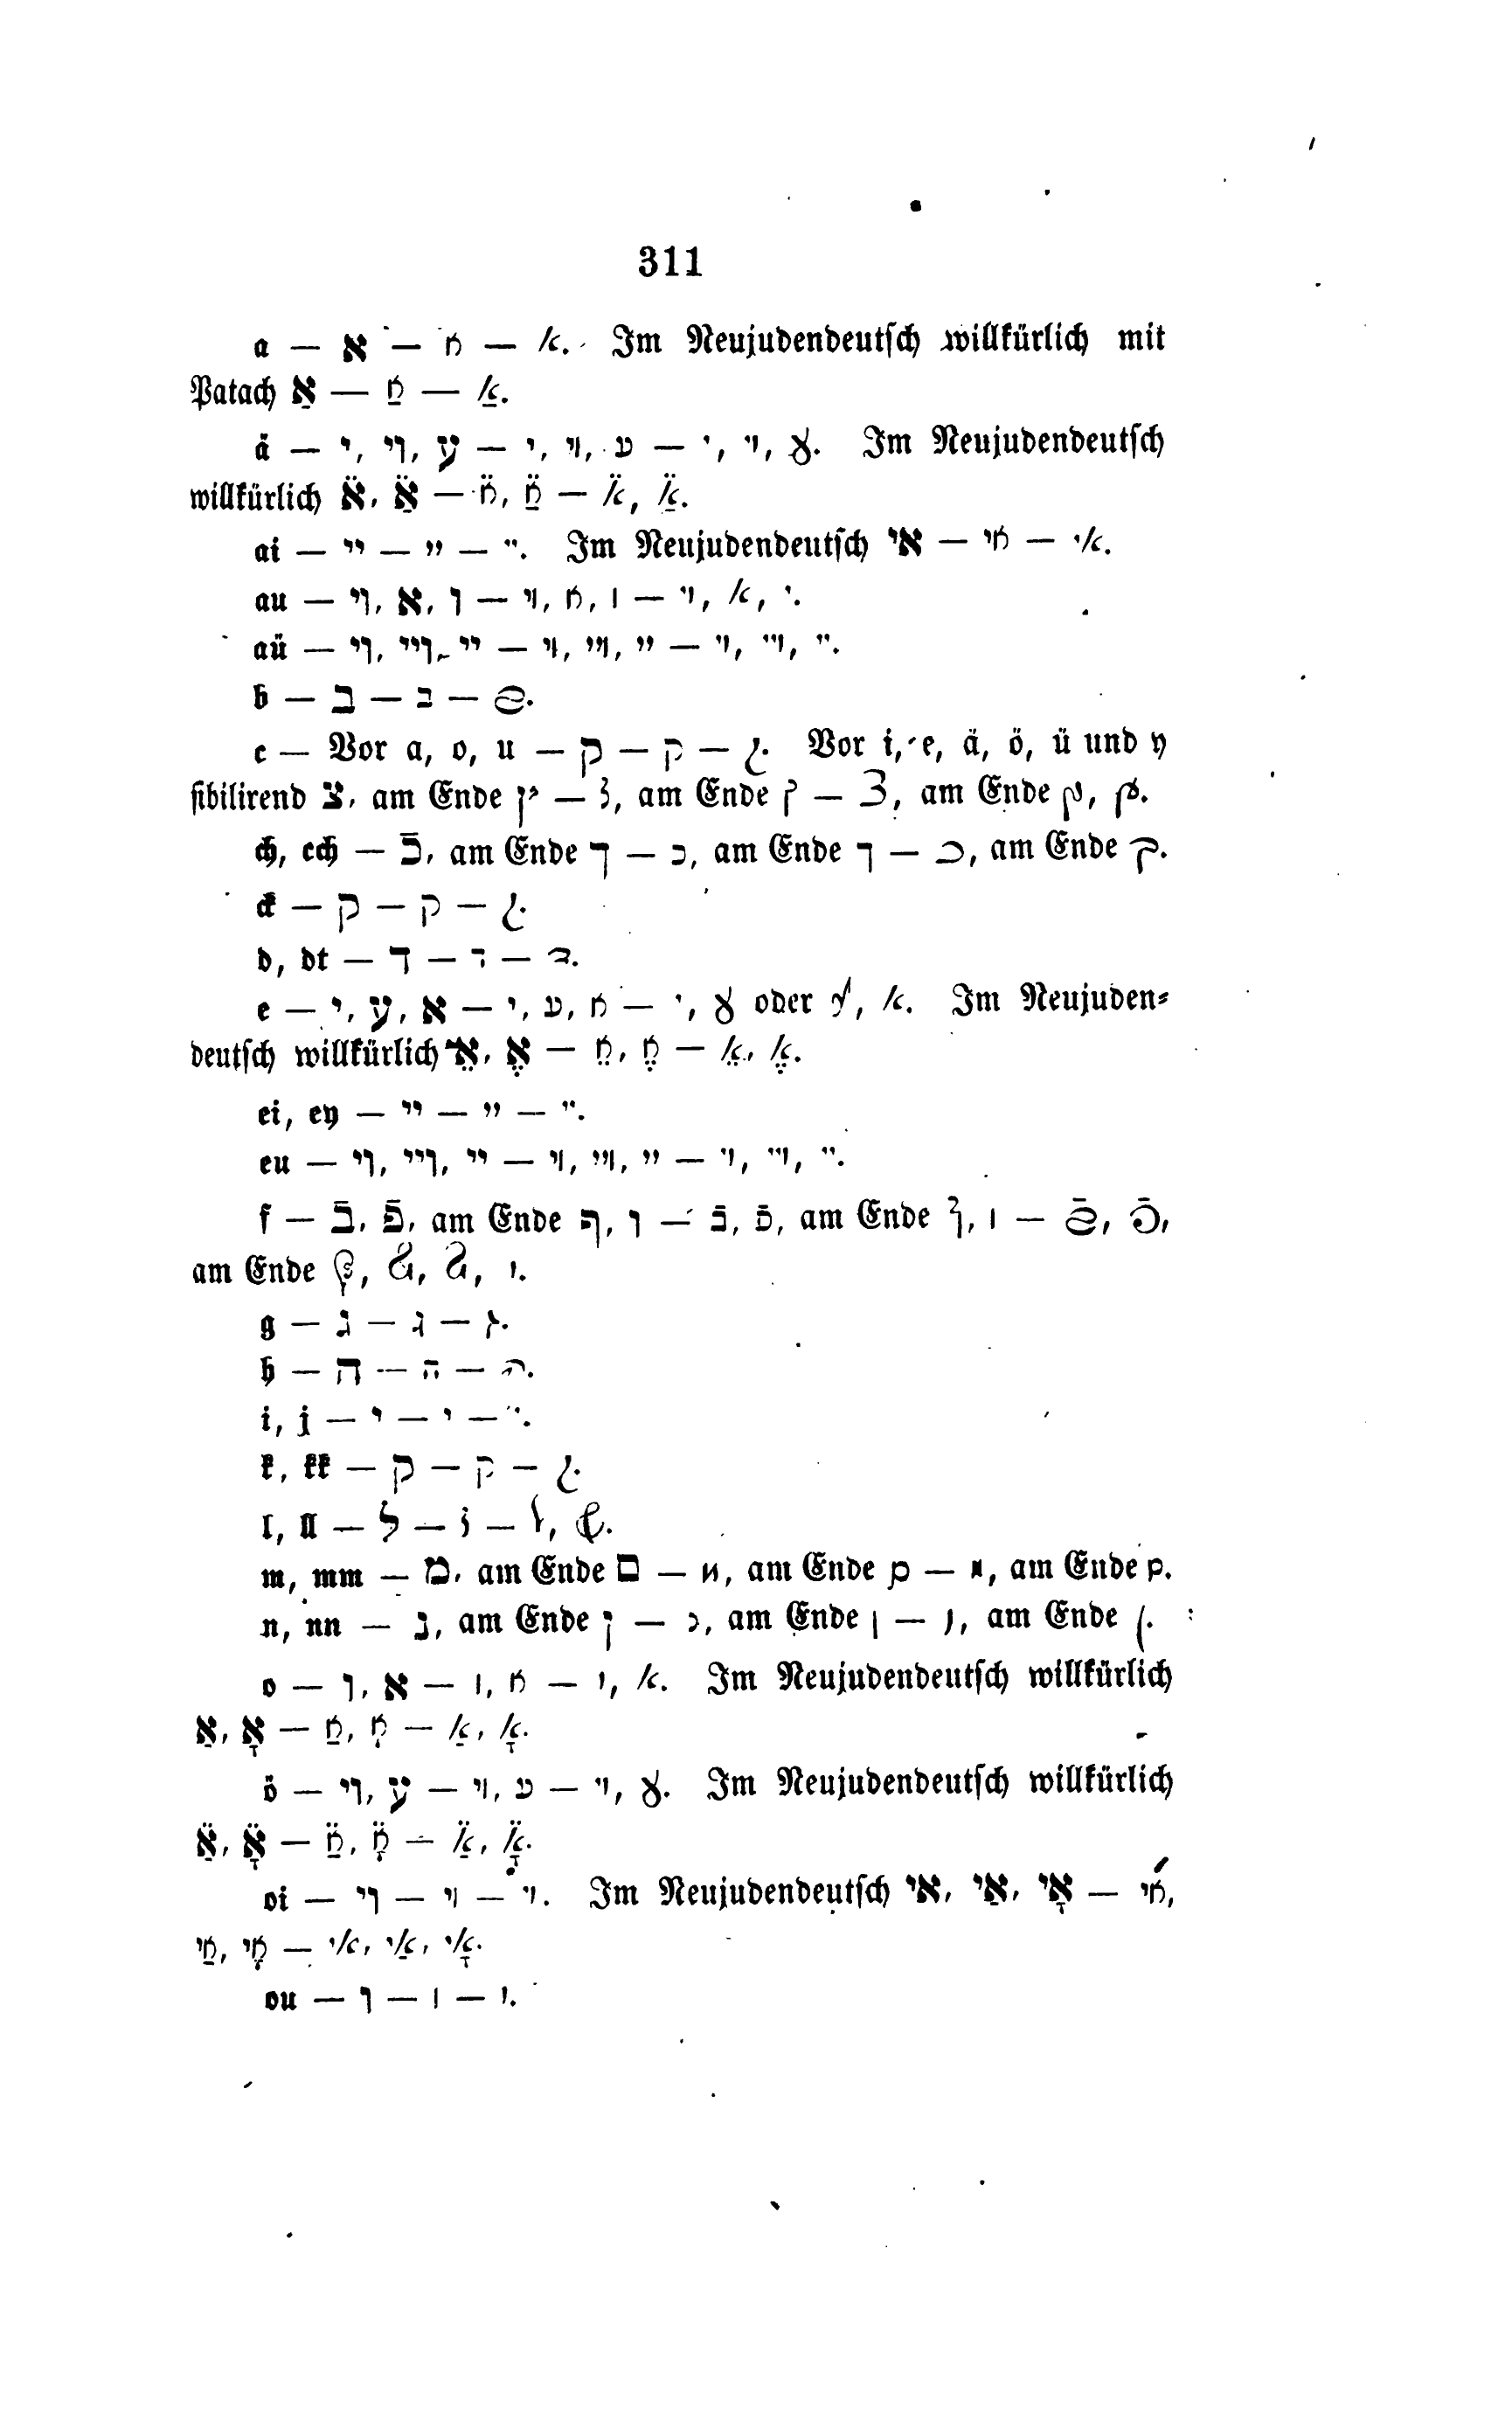 311
a — א — א — א. Im Neujudendeutſch willkürlich mit
Patach אַ — אַ — אַ.
ä — י, וי, ע — י, וי, ע — י, וי, ע. Im Neujudendeutſch
willkürlich א̈, אַ̈ — א̈, אַ̈ — א̈, אַ̈.
ai — יי — יי — יי. Im Neujudendeutſch אי — אי — אי.
au — וי, א, ו — וי, א, ו — וי, א, י.
aü — וי, ויי, יי — וי, ויי, יי — וי, ויי, יי.
b — ב — ב — ב.
c — Vor a, o, u — ק — ק — ק. Vor i, e, ä, ö, ü und y
ſibilirend צ, am Ende ץ — צ, am Ende ץ — צ, am Ende ץ, ץ.
ch, cch — כֿ, am Ende ך — כ, am Ende ך — כ, am Ende ך.
ck — ק — ק — ק.
d, dt — ד — ד — ד.
e — י, ע, א — י, ע, א — י, ע oder ע, א. Im Neujuden⸗
deutſch willkürlich אֵ, אֶ — אֵ, אֶ — אֵ, אֶ.
ei, ey — יי — יי — יי.
eu — וי, ויי, יי — וי, ויי, יי — וי, ויי, יי.
f — בֿ, פֿ, am Ende ף, ו — בֿ, פֿ, am Ende ף, ו — בֿ, פֿ,
am Ende ף, ף, ף, ו.
g — ג — ג — ג.
h — ה — ה — ה.
i, j — י — י — י.
k, kk — ק — ק — ק.
l, ll — ל — ל — ל, ל.
m, mm — מ, am Ende ם — מ, am Ende ם — מ, am Ende ם.
n, nn — נ, am Ende ן — נ, am Ende ן — נ, am Ende ן.
o — ו, א — ו, א — ו, א. Im Neujudendeutſch willkürlich
אַ, אָ — אַ, אָ — אַ, אָ.
ö — וי, ע — וי, ע — וי, ע. Im Neujudendeutſch willkürlich
אַ̈, אָ̈ — אַ̈, אָ̈ — אַ̈, אָ̈.
oi — וי — וי — וי. Im Neujudendeutſch אי, אַי, אָי — אי,
אַי, אָי — אי, אַי, אָי.
ou — ו — ו — ו.